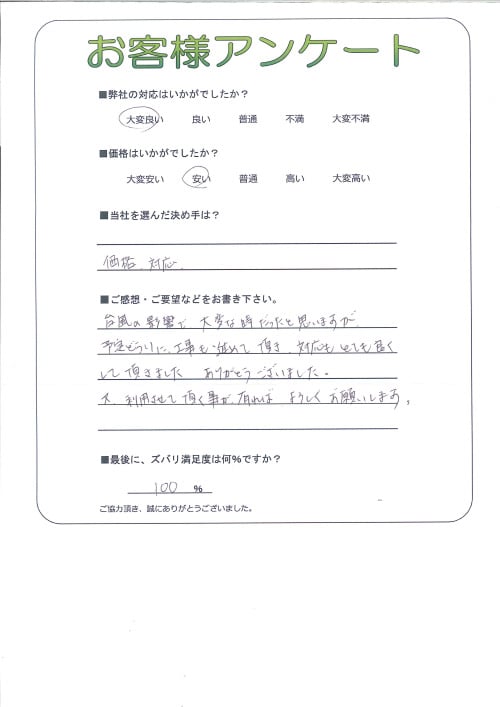 お客様アンケート
■弊社の対応はいかがでしたか？
大変良い 良い 普通 不満 大変不満
■価格はいかがでしたか？
大変安い 安い 普通 高い 大変高い
■当社を選んだ決め手は？
価格、対応、
■ご感想・ご要望などをお書き下さい。
台風の影響で 大変な時だったと思いますが、
予定どうりに、工事も進めて頂き、対応もとても良く
して頂きました ありがとうございました。
又、利用させて頂く事が、有れば よろしくお願いします。
■最後に、ズバリ満足度は何％ですか？
100 ％
ご協力頂き、誠にありがとうございました。